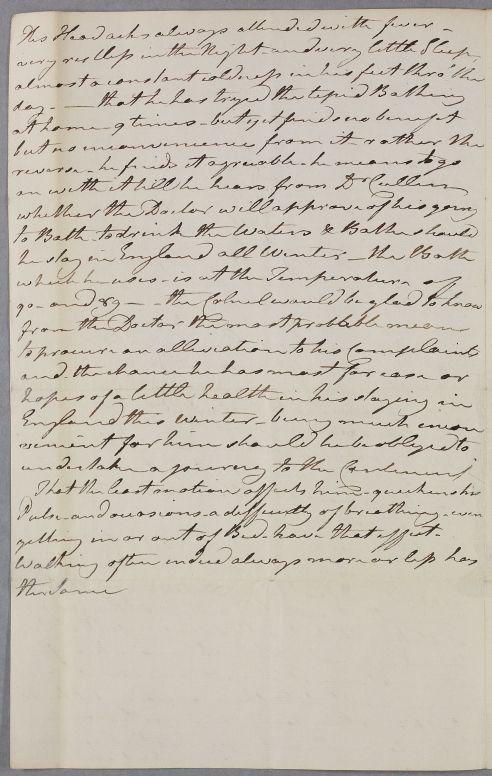 His Headachs always attended with fever –
very restless in the Night – and very little Sleep,
almost a constant coldness in his feet thro' the
day – — that he has tryed the tepid Bathing
at home – 9 times – but yet finds no benefit
but no inconvenience from it – rather the
reverse – he finds it agreable – he means to go
on with it till he hears from Dr Cullen
whether the Doctor will approve of his going
to Bath – to drink the Waters & Bathe should
he stay in England all Winter – the Bath
which he uses – is at the Temperature of
90 – and 89 – the Colnel would be glad to know
from the Doctor the most probable means
to procure an alleviation to his Complaints
and the chance he has most for ease or
hopes of a little health in his staying in
England this winter – being much incon
venient for him should he be obliged to
undertake a journey to the Continent
That the least motion affects him – quickens his
Pulse and occasions a difficulty of breathing – even
getting in or out of Bed – have that effect –
Walking often indeed always more or less has
the Same